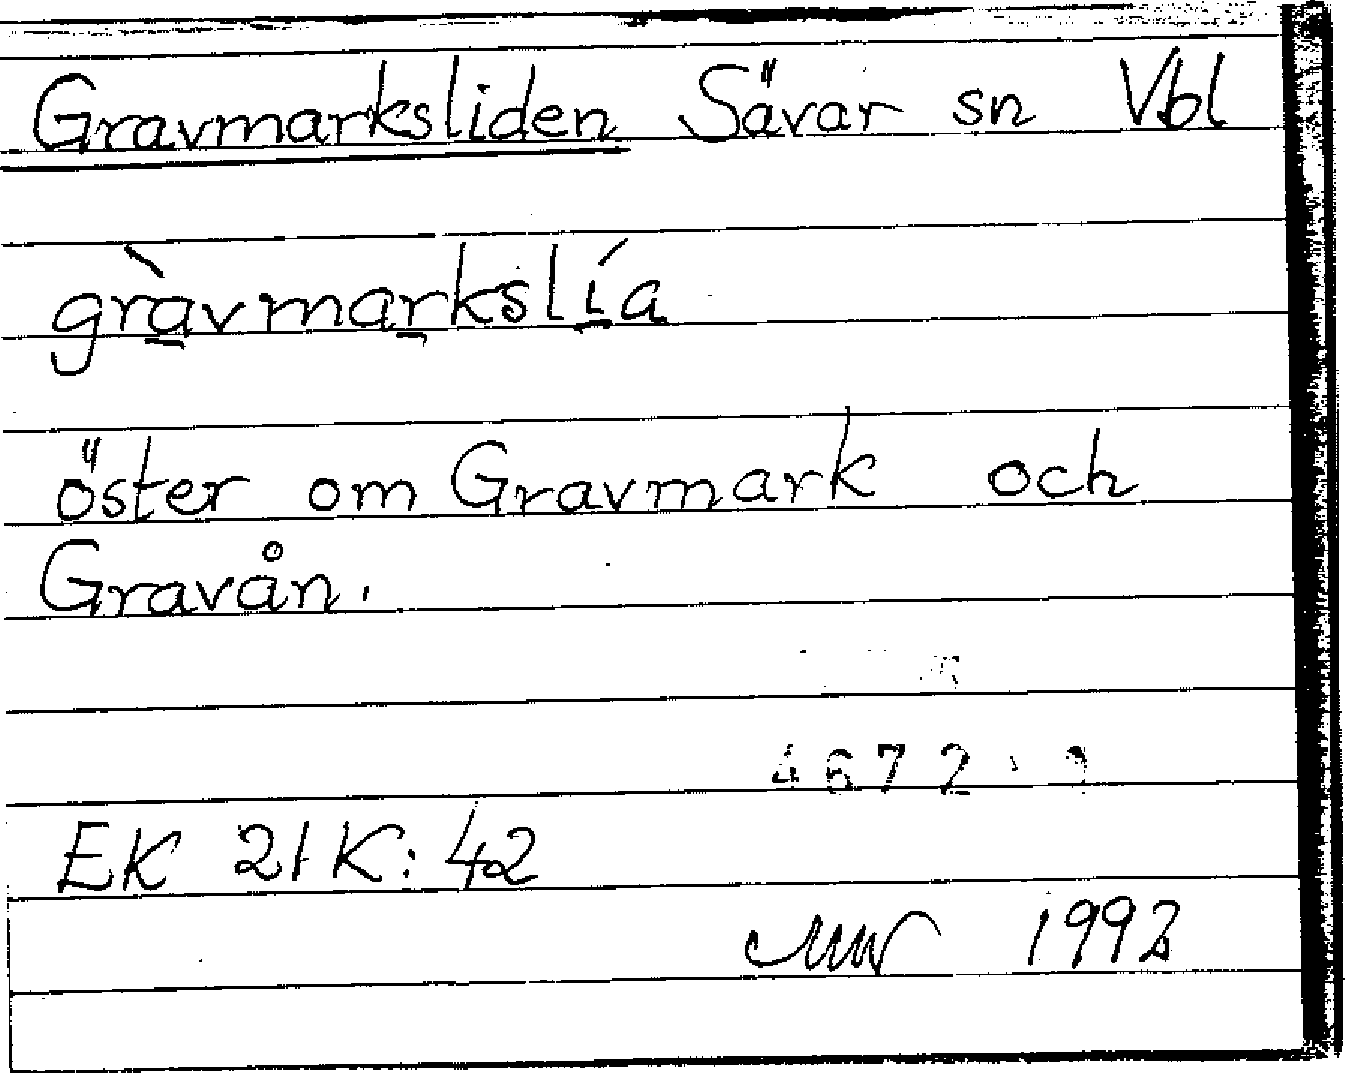 Gravmarksliden Sävar sn Vbl
gràvmarkslía
öster om Gravmark och
Gravån.
4672
EK 21K: 42
1992